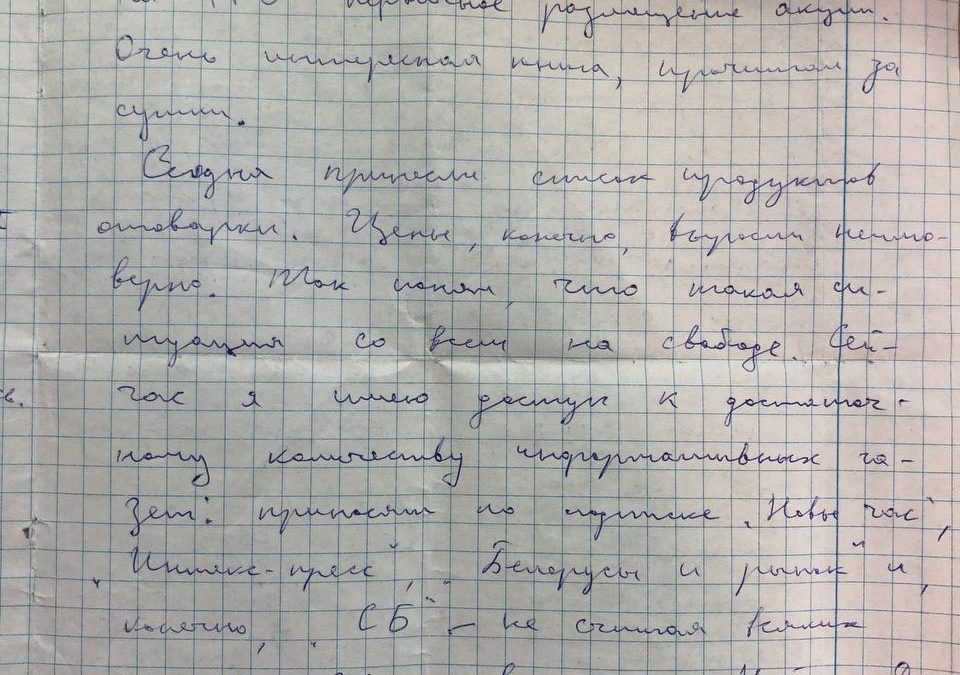 первичное размещение акций.
Очень интересная книга, прочитал за
сутки.
Сегодня принесли список продуктов
отоварки. Цены, конечно, выросли неимо-
верно. Так понял, что такая си-
туация со всем на свободе. Сей-
час я имею доступ к достаточ-
ному количеству информативных га-
зет: приносят по подписке „Новы час",
„Интекс-пресс", „Белорусы и рынок" и,
конечно, „СБ" – не считая всяких